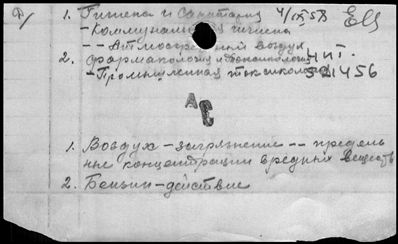 Ф/ 1. Гигиена и Санитария 4/IX 58
- Коммунальная гигиена
-- Атмосферный воздух
2. Фармакология и Токсикология чит.
- Промышленная токсикология 321456
АС
1. Воздух - загрязнение -- предель
ные концентрации вредных веществ
2. Бензин - действие